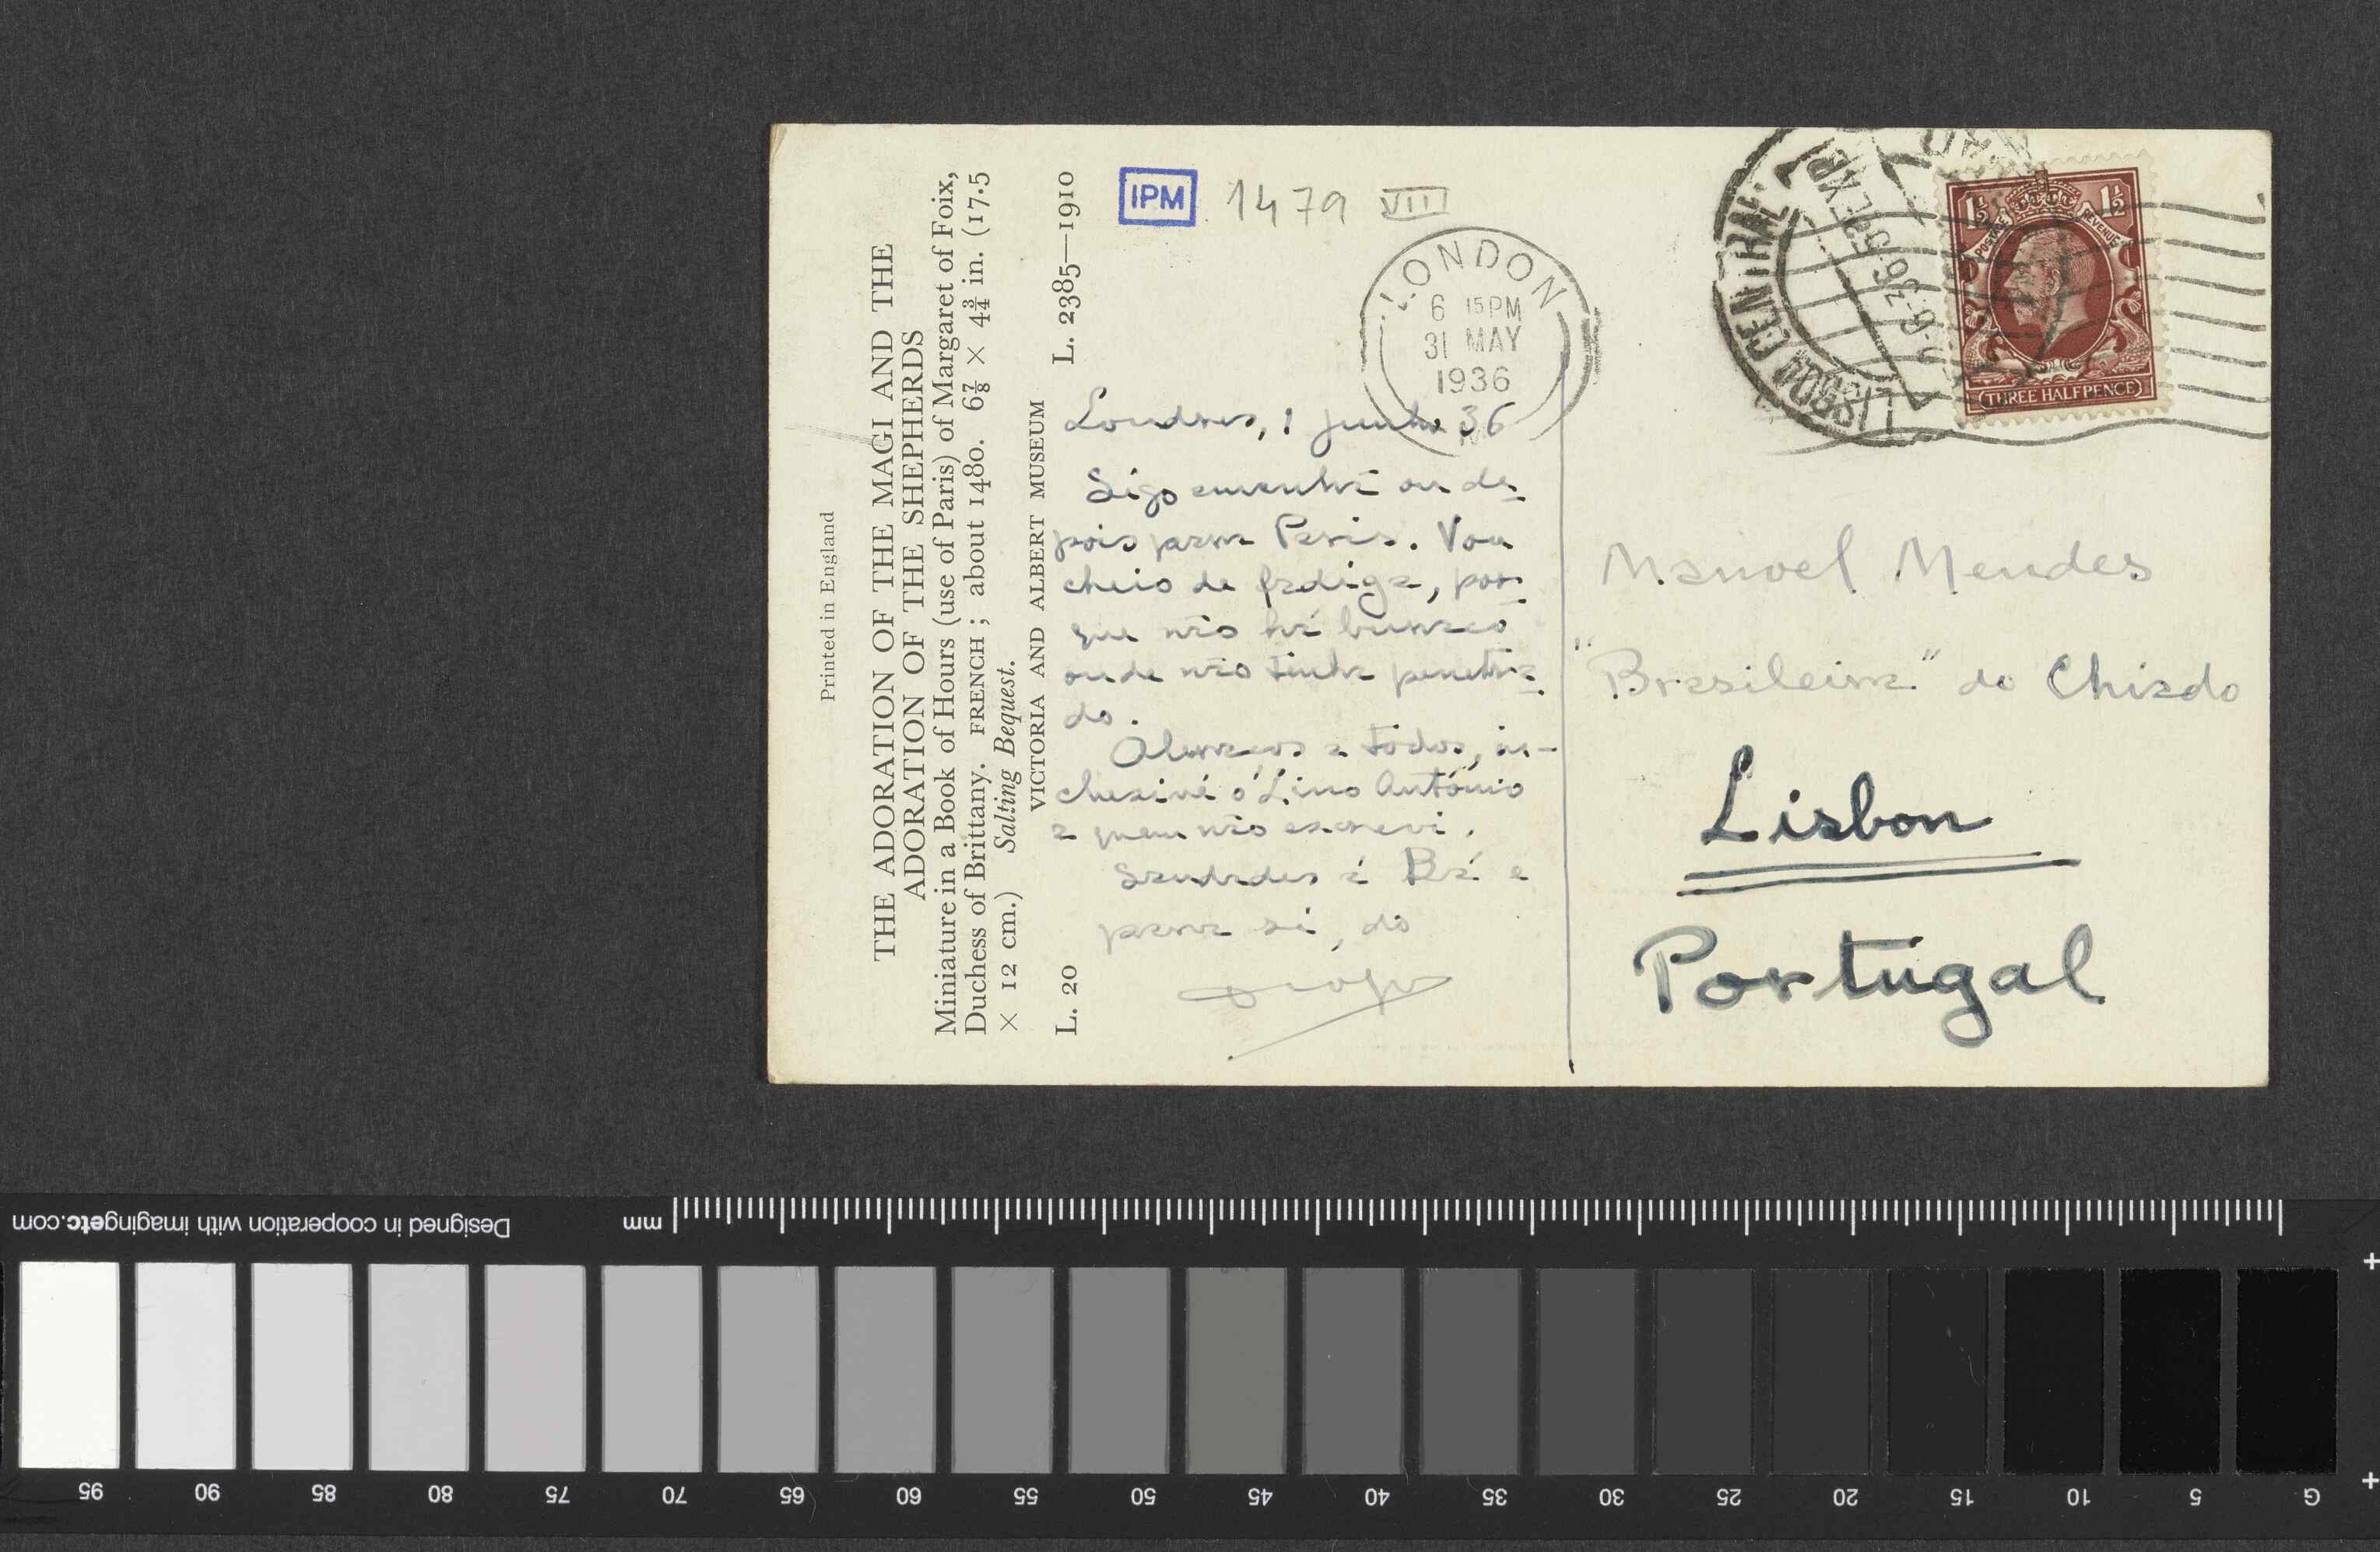 Printed in England
THE ADORATION OF THE MAGI AND THE
ADORATION OF THE SHEPHERDS
Miniature in a Book of Hours (use of Paris) of Margaret of Foix,
Duchess of Brittany. FRENCH ; about 1480. 6⅞ × 4¾ in. (17.5
× 12 cm.) Salting Bequest.
VICTORIA AND ALBERT MUSEUM
L. 20 L. 2385—1910
IPM 1479 VII
LONDON
6 15PM
31 MAY
1936
Londres, 1 Junho 36
Sigo amanhã ou de-
pois para Paris. Vou
cheio de fadiga, por-
que não há buraco
onde não tinha penetra-
do.
Abraços a todos, in-
clusivé ó Lino António
a quem não escrevi.
Saudades á Bá e
para si, do
LISBOA CENTRAL
1½ 1½
POSTAGE REVENUE
THREE HALFPENCE
Manoel Mendes
"Brasileira" do Chiado
Lisbon
Portugal
Designed in cooperation with imagingetc.com
mm
95 90 85 80 75 70 65 60 55 50 45 40 35 30 25 20 15 10 5 G